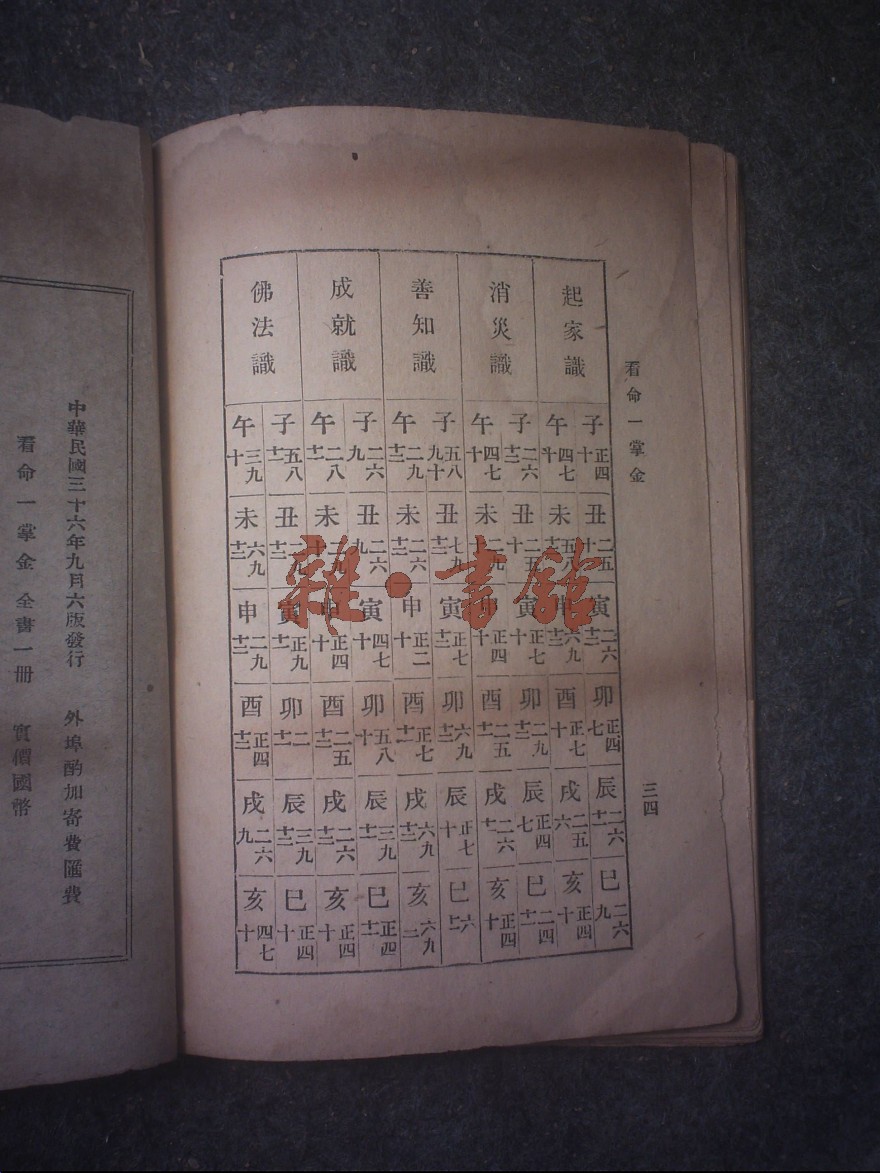 看命一掌金
三四
起家識
子 正四 十
丑 二五
寅 二六 十二
卯 正四 七
辰 二六 十二
巳 二六 九
午 四七 十
未 五八
申 六九 十二
酉 正七 十
戌 二五 六
亥 正四 十
消災識
子 二六 十二
丑 二五 十
寅 正七 十
卯 二九 十二
辰 正四 七
巳 二四 十一
午 四七 十
未 十
申 正四 十
酉 二五 十二
戌 二六 十一
亥 正四 十
善知識
子 五八 九十
丑 七九 十二
寅 正七 十二
卯 六九 十二
辰 正七 十
巳 六
午 二九 十二
未 二六 十二
申 正二 十
酉 正七 十二
戌 六九 十二
亥 六九 二
成就識
子 二六 九
丑 二六 九
寅 四七 十
卯 五八 十
辰 三九 十一
巳 正四 十一
午 二八 十一
未
申 正四 十
酉 二五 十二
戌 二六 十二
亥 正四 十
佛法識
子 五八 十一
丑 二九
寅 正九 十二
卯 二
辰 三九 十二
巳 正四 十
午 三九 十
未 六九 十二
申 二九 十二
酉 正四 十二
戌 二六 九
亥 四七 十
中華民國三十六年九月六版發行 外埠酌加寄費匯費
看命一掌金 全書一册 實價國幣
雜·書館